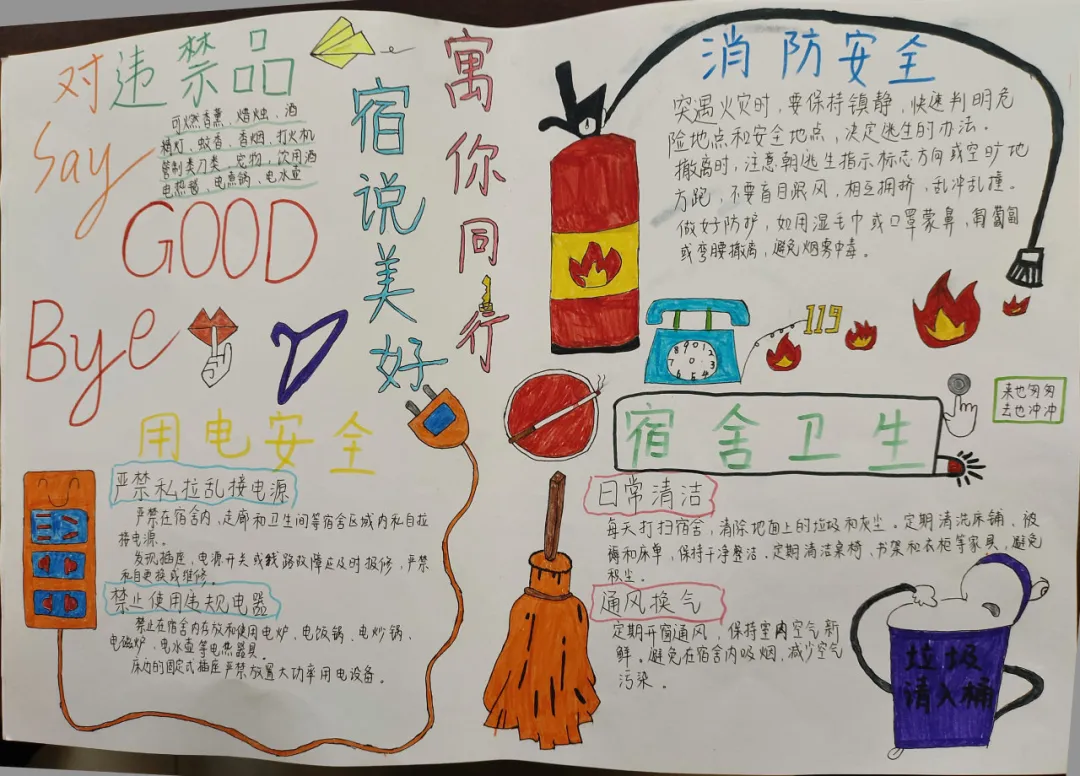 对违禁品
可燃香薰、蜡烛、酒
精灯、蚊香、香烟、打火机
管制类刀类、宠物、饮用酒
电热器、电煮锅、电水壶
Say
GOOD
Bye
宿说美好
寓你同行
消防安全
突遇火灾时，要保持镇静，快速判明危
险地点和安全地点，决定逃生的办法。
撤离时，注意朝逃生指示标志方向或空旷地
方跑，不要盲目跟风，相互拥挤，乱冲乱撞。
做好防护，如用湿毛巾或口罩蒙鼻，匍匐
或弯腰撤离，避免烟雾中毒。
119
8 9 0 1 2
7 0 3
6 5 4
用电安全
严禁私拉乱接电源
严禁在宿舍内，走廊和卫生间等宿舍区域内私自拉
接电源。
发现插座，电源开关或线路故障应及时报修，严禁
私自更换或维修。
禁止使用违规电器
禁止在宿舍内存放和使用电炉、电饭锅、电炒锅、
电磁炉、电水壶等电热器具。
床边的固定式插座严禁放置大功率用电设备。
宿舍卫生
来也匆匆
去也冲冲
日常清洁
每天打扫宿舍，清除地面上的垃圾和灰尘。定期清洗床铺、被
褥和床单，保持干净整洁。定期清洁桌椅、书架和衣柜等家具，避免
积尘。
通风换气
定期开窗通风，保持室内空气新
鲜。避免在宿舍内吸烟，减少空气
污染。
垃圾
请入桶